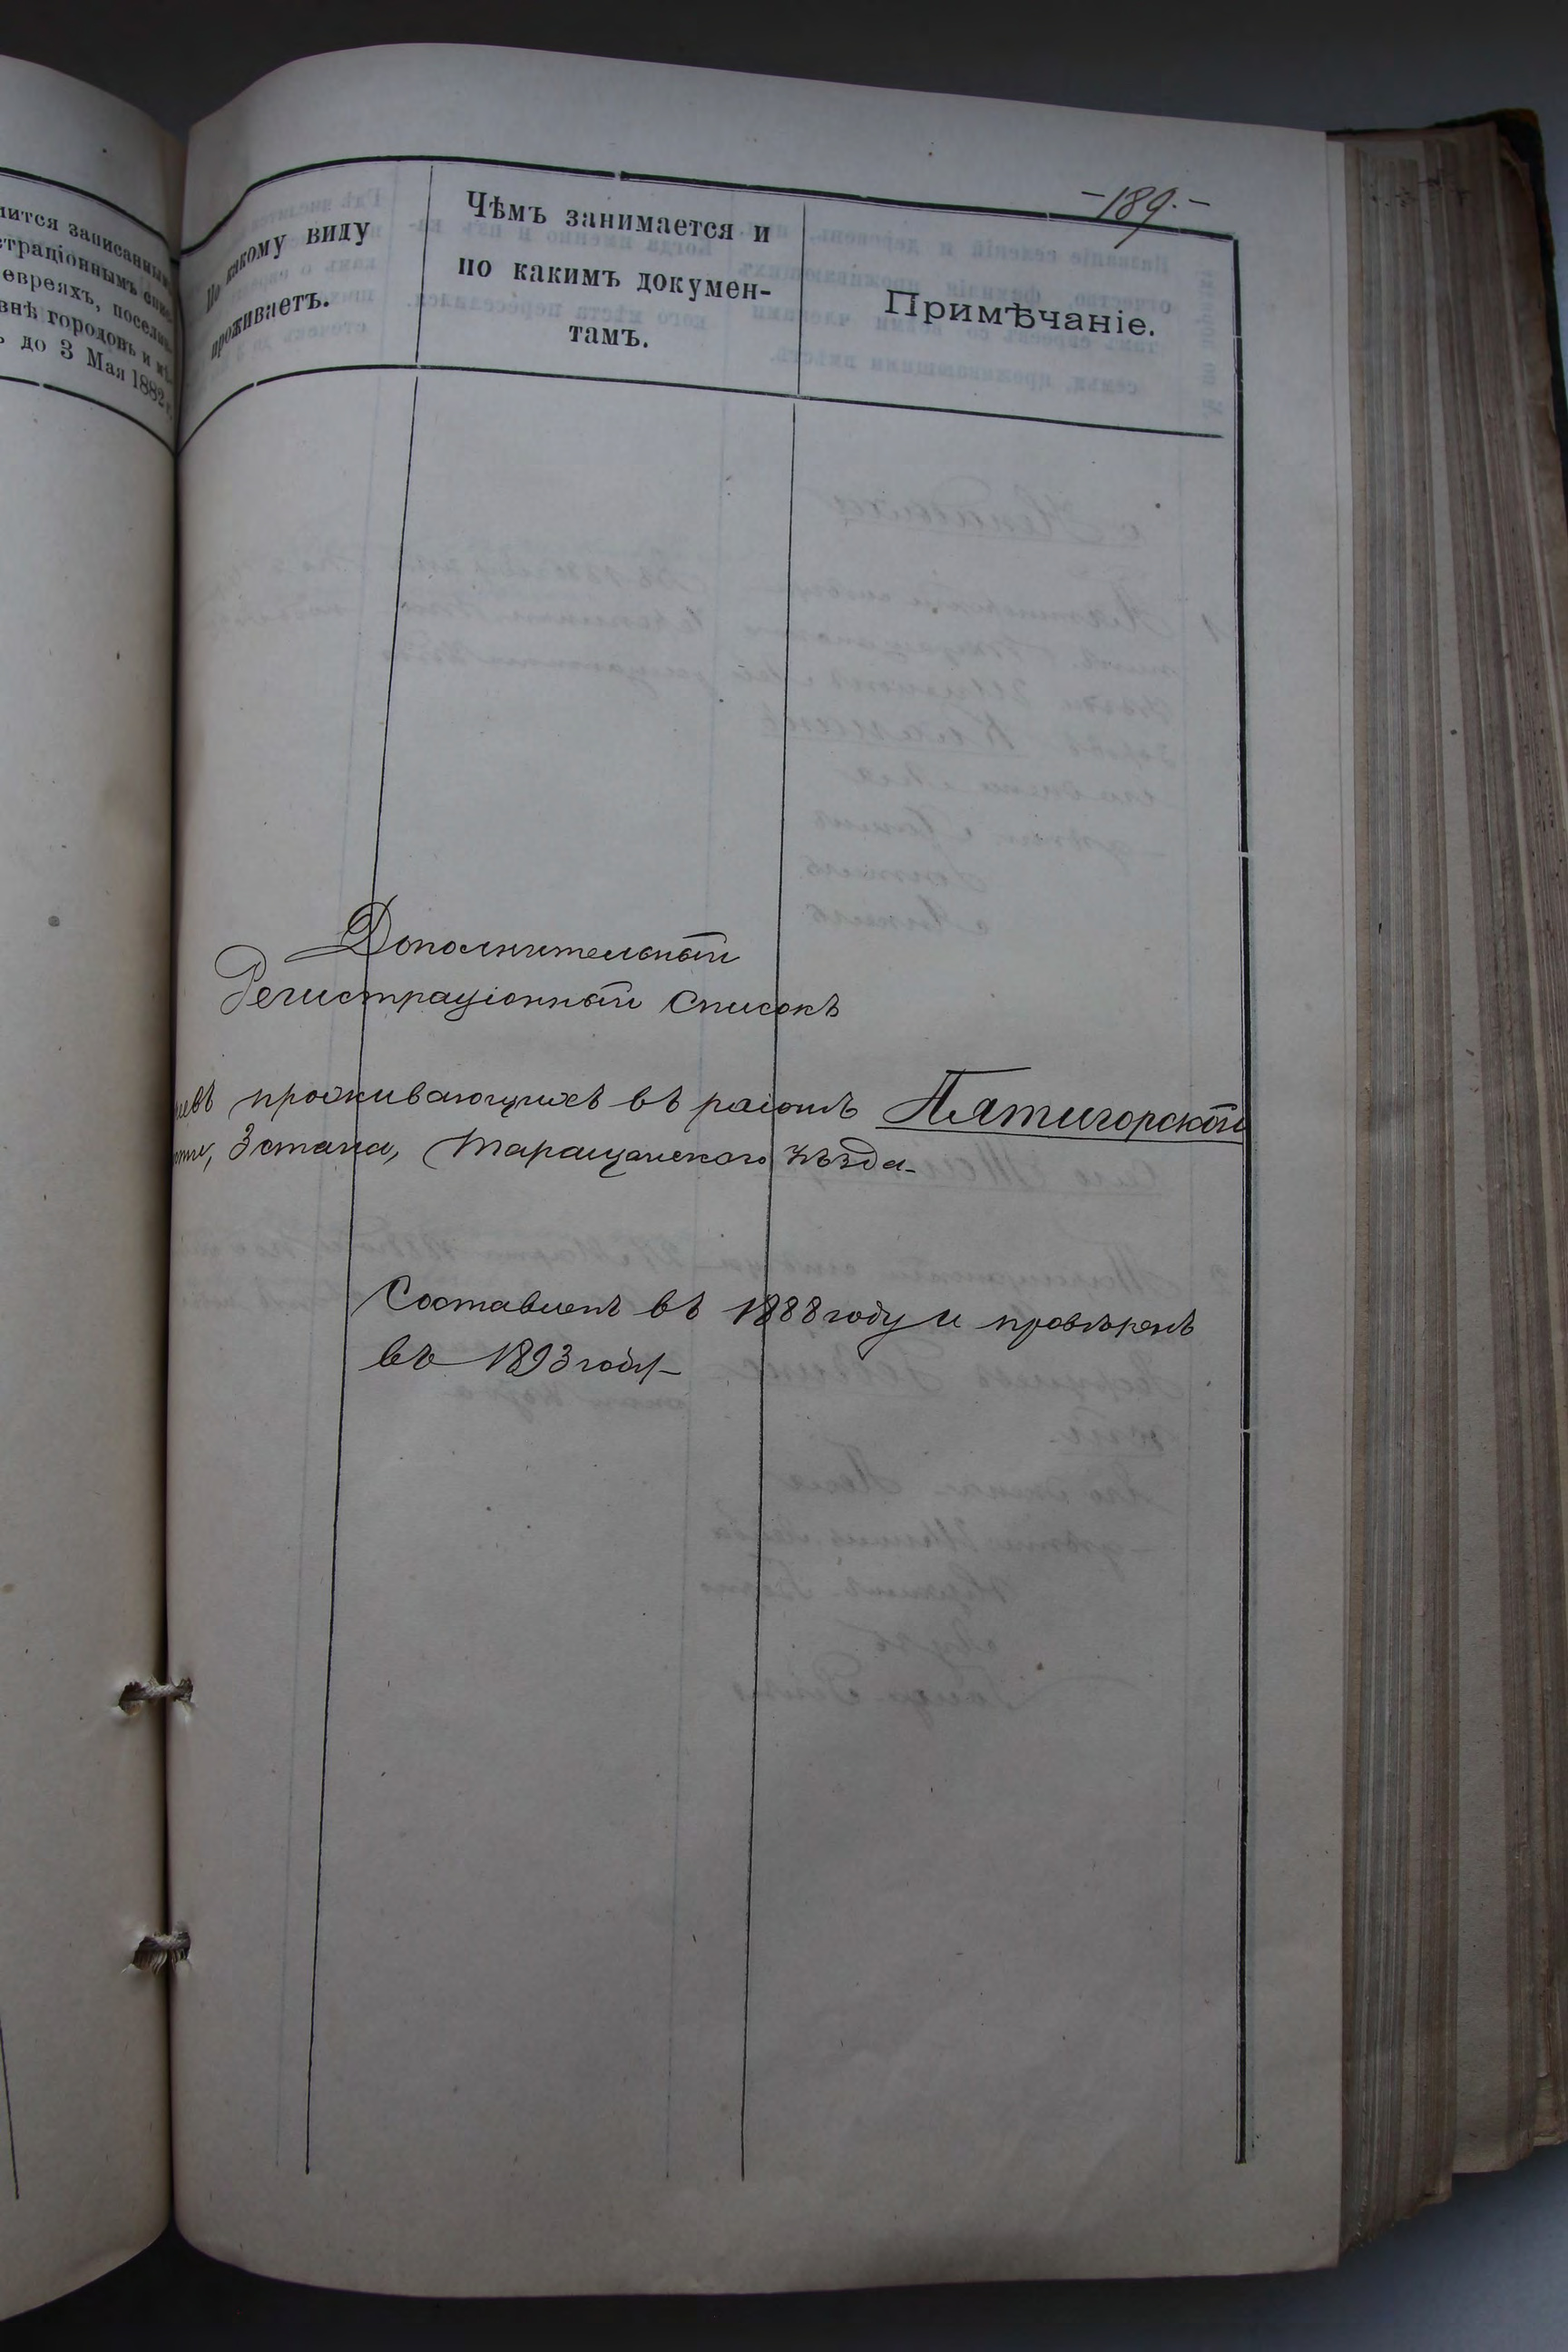 -189.-
записан
страціоннымъ
евреяхъ, поселив
внѣ городовъ и мѣ
до 3 Мая 1882 г.
По какому виду
проживаетъ.
Чѣмъ занимается и
по какимъ докумен-
тамъ.
Примѣчаніе.
Дополнительный
Регистраціонный списокъ
проживающихъ въ раіонѣ Пятигорской
3 стана, Таращанского уѣзда-
Составленъ въ 1888 году и провѣренъ
въ 1893 году-